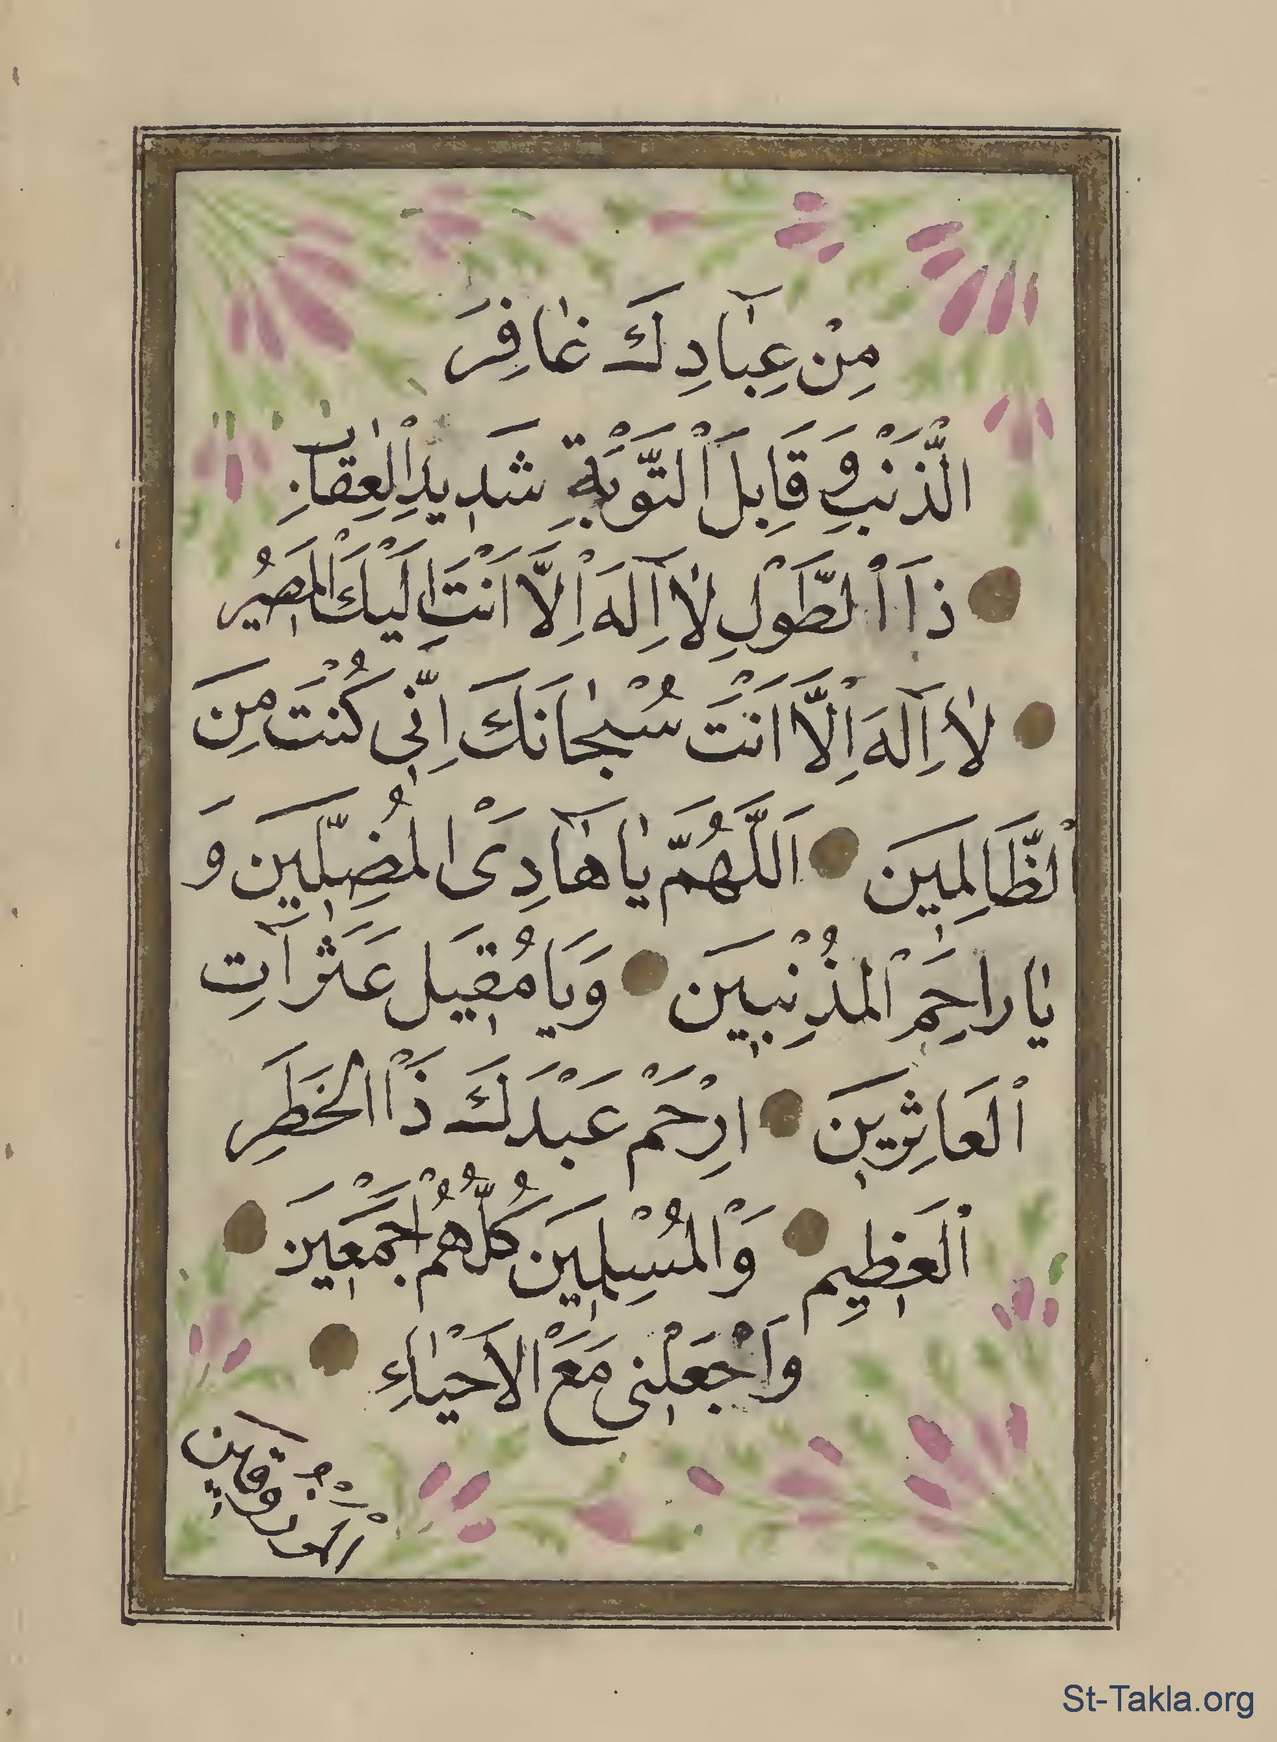 مِنْ عِبَادِكَ غَافِرَ
الذَّنْبِ وَ قَابِلَ الْتَّوْبَةِ شَدِيدِ الْعِقَابِ
ذَا الْطَّوْلِ لَا اِلَهَ اِلَّا اَنْتَ اِلَيْكَ الْمَصِيرُ
لَا اِلَهَ اِلَّا اَنْتَ سُبْحَانَكَ اِنِّي كُنْتُ مِنَ
الْظَّالِمِينَ اَللَّهُمَّ يَا هَادِىَ الْمُضِلِّينَ وَ
يَا رَاحِمَ الْمُذْنِبِينَ وَيَا مُقِيلَ عَثَرَاتِ
الْعَاثِرِينَ اِرْحَمْ عَبْدَكَ ذَا الْخَطَرِ
الْعَظِيمِ وَالْمُسْلِمِينَ كُلُّهُمْ اَجْمَعِينَ
وَاجْعَلْنِى مَعَ الْاَحْيَاءِ
الْمَرْزُوقِينَ
St-Takla.org